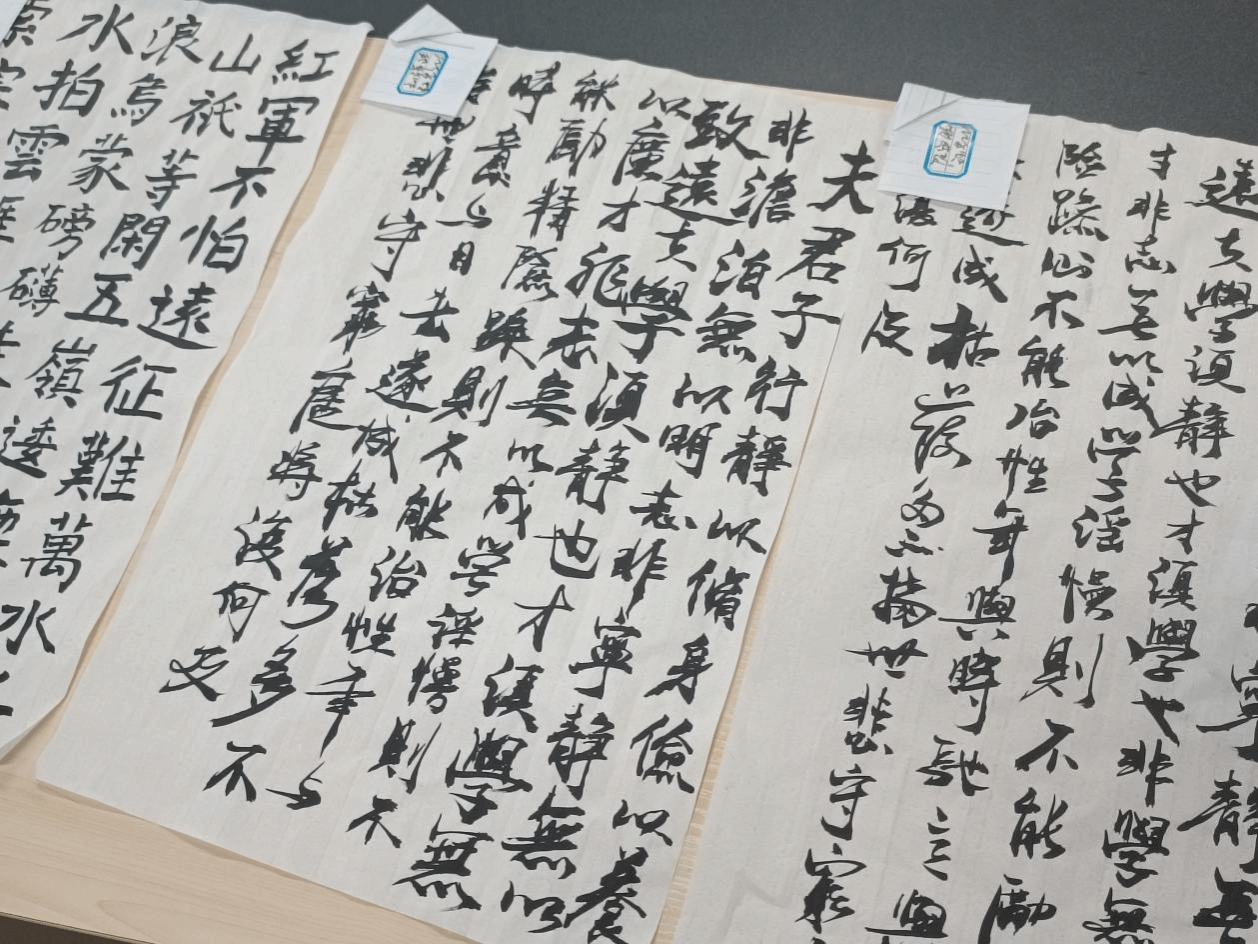 寧靜無
遠夫學須靜也才須學也非學無
才非志無以成學淫慢則不能勵
險躁則不能治性年與時馳意與
遂成枯落多不接世悲守窮
復何及
夫君子行靜以脩身儉以養
非澹泊無以明志非寧靜無以
致遠夫學須靜也才須學無
以廣才非志無以成学淫慢則不
能勵精險躁則不能治性年与
時意与日去遂成枯落多不
世悲守窮廬將復何及
紅軍不怕遠征難萬水
山祇等閑五嶺逶
浪烏蒙磅礴
水拍雲崖